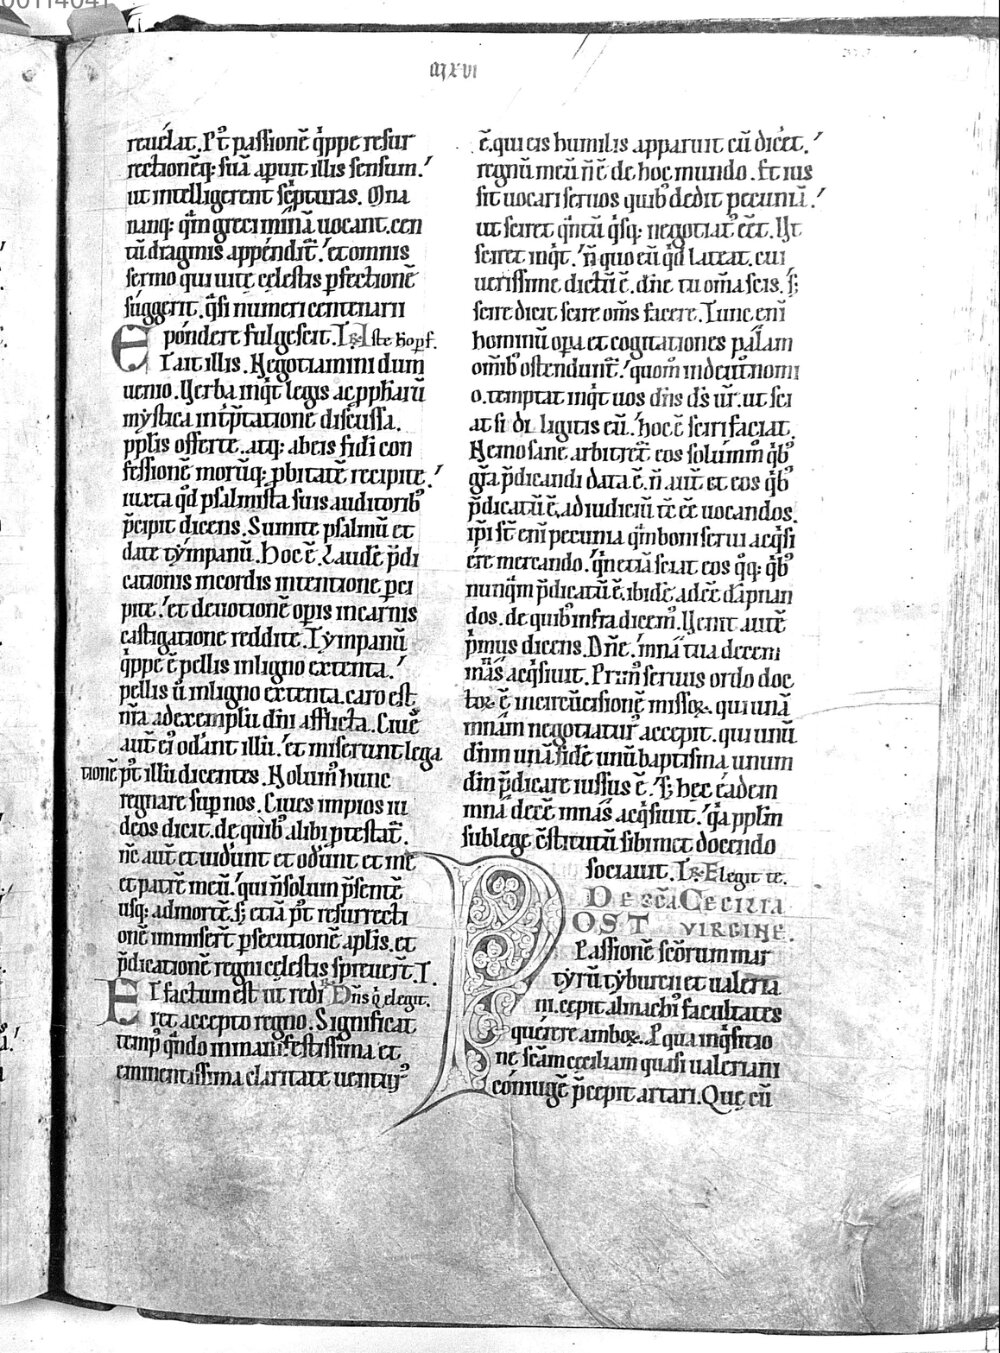 00114041
cxvi
reuelat. P᷒t passionē q̇ppe resur
rectionēq; suā apuit illis sensum.
ut intelligerent sc̄pturas. Mna
nanq; qm̄ greci minā uocant. cen
tū dragmis appendit᷑. et omnis
sermo qui uite celestis ꝑfectionē
suggerit. q̇si numeri centenarii
pondere fulgescit. R̄ Iste ho ꝑf.
Et ait illis. Negotiamini dum
uenio. Verba inq̇t legis ac ꝓphaꝛū
mystica int̄p̄tatione discussa.
ppl̄is offerte. atq; ab eis fidi con
fessionē moruq; ꝓbitatē recipite.
iuxta qd̄ psalmista suis auditorib᷒
p̄cipit dicens. Sumite psalmū et
date tympanū. Hoc ē. Laudē p̄di
cationis in cordis intentione ꝑci
pite. et deuotionē oꝑis in carnis
castigatione reddite. Tympanū
q̇ppe ē pellis in ligno extenta.
pellis ū in ligno extenta. caro est
nr̄a ad exemplū dn̄i afflicta. Ciues
aut̄ ei᷒ oderant illū. et miserunt lega
tionē p᷒t illū dicentes. Nolum᷒ hunc
regnare suꝑ nos. Ciues impios iu
deos dicit. de quib᷒ alibi p̄testat᷑.
Nc̄ aut̄ et uidunt et oderunt et me
et patrē meū. qui n̄ solum p̄sentē
usq; ad mortē. s; etiā p᷒t resurrecti
onē inmiser̄t ꝑsecutionē aplis. et
p̄dicationē regni celestis spreuer̄t.
Et factum est ut redi R̄ Dn̄s q̇ elegit.
ret accepto regno. Significat
temp᷒ qn̄do in manifestissima et
eminentissima claritate uentur᷒
ē. qui eis humilis apparuit cū dicer̄t.
regnū meū n̄ ē de hoc mundo. Et ius
sit uocari seruos quib᷒ dedit pecuniā.
ut sciret qn̄tū q̇sq; negotiat᷒ eēt. Vt
sciret inq̇t. n̄ quo eū qd̄ lateat. cui
uerissime dictū ē. dn̄e tu om̄a scis. s;
scire dicit scire om̄s facere. Tunc eni
hominū oꝑa et cogitationes palam
om̄ib᷒ ostendunt᷑. quom̄ in deut̄nomi
o. temptat inq̇t uos dn̄s ds̄ ur̄. ut sci
at si diligitis eū. hoc ē sciri faciat.
Nemo sane arbitret᷑ eos solummo q̇b᷒
gr̄a p̄dicandi data ē. n̄ aut̄ et eos q̇b᷒
p̄dicatū ē. ad iudiciū tc̄ eē uocandos.
ip̄i st̄ eni pecunia qm̄ boni serui acq̇si
ere mercando. qn̄ etiā sciat eos q̇q; q̇b᷒
nunq̄m p̄dicatū ē. ibidē adeē dāpnan
dos. de quib᷒ infra dicem᷒. Venit autē
p̄mus dicens. Dn̄e. mna tua decem
mnas acq̇siuit. Prim᷒ seruus ordo doc
toꝝ ē in circūcisionē missoꝝ. qui unā
mnam negotiatur᷒ accepit. qui unū
dn̄m unā fidē unū baptisma unum
dm̄ p̄dicare iussus ē. S; hec eadem
mna decē mnas acq̇siuit. q̇a pplm̄
sub lege c̄stitutū sibimet docendo
sociauit. R̄ Elegit te.
De sc̄a Cecilia
POST VIRGINE.
Passionē scōrum mar
tyrū tyburtii et ualeria
ni. cepit almachi᷒ facultates
querere amboꝝ. P qua inq̇sitio
ne scām ceciliam quasi ualeriani
coniugē p̄cepit artari. Que cū